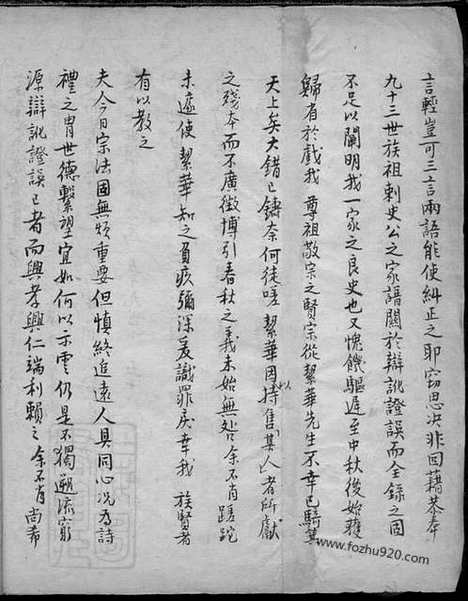 言輕豈可三言兩語能使糾正之耶窃思决非回藉恭奉
九十三世族祖刺史公之家譜關於辯訛證誤而全錄之固
不足以闡明我一家之良史也又愧饑驅遲至中秋後始獲
歸者於戲我 尊祖敬宗之賢宗從絜華先生不幸已騎箕
天上矣大錯已鑄奈何徒嗟 絜華因持售以其人者所獻
之殘本而不廣徵博引春秋之義未始無咎余不肖蹉跎
未遑使絜華知之負疚彌深爰識罪戾幸我 族賢者
有以教之
夫今日宗法固無煩重要但慎終追遠人具同心况為詩
禮之胄世德繫望宜如何以示雲仍是不獨遡流窮
源辯訛證誤已者而興孝興仁端利賴之余不肖尚希
www.fozhu920.com